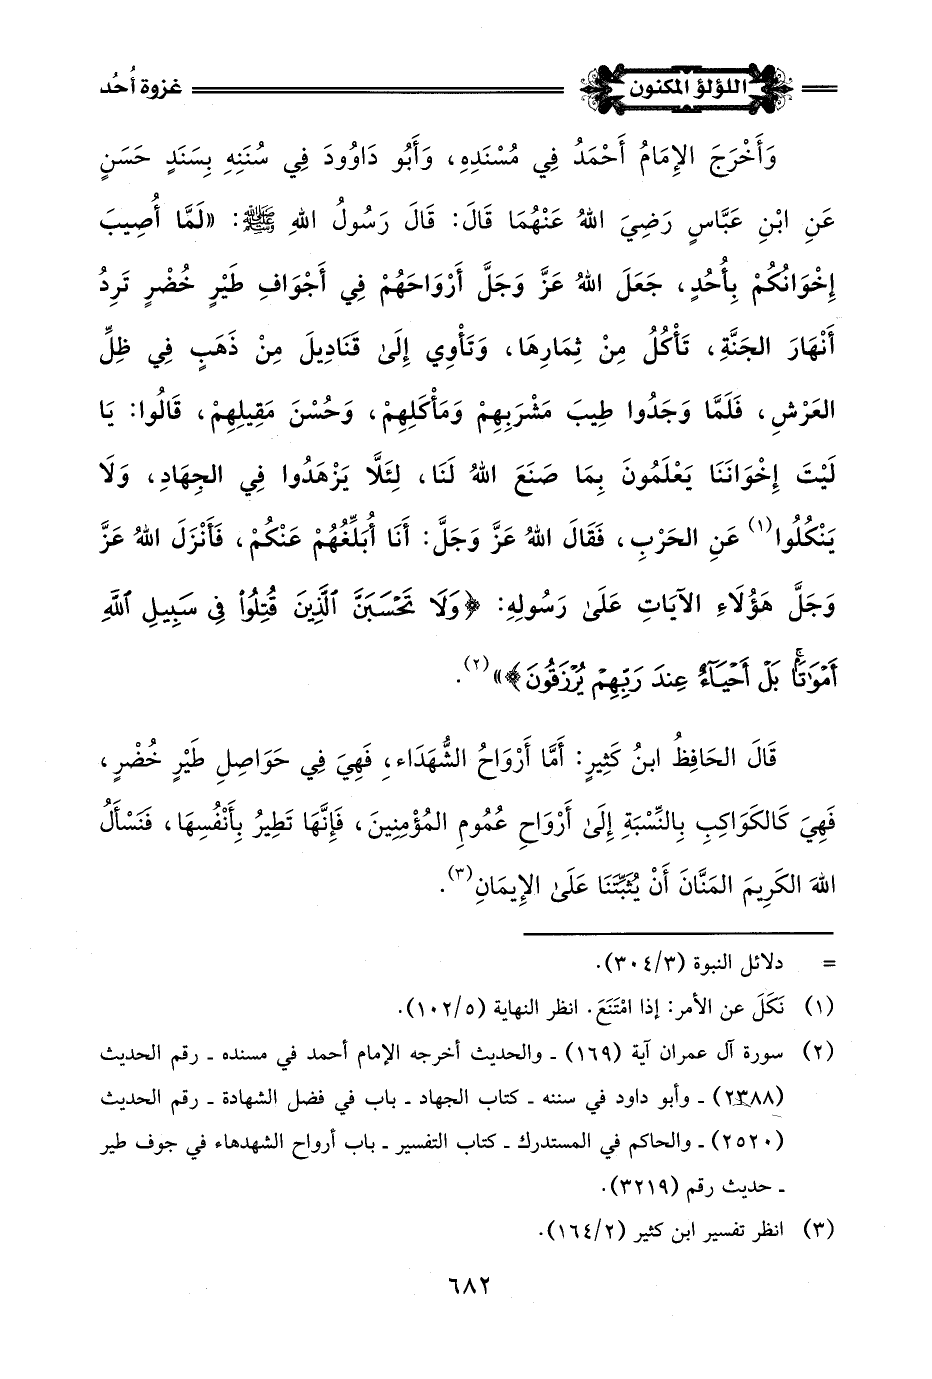 اللؤلؤ المكنون غزوة أُحُد
وَأَخْرَجَ الإِمَامُ أَحْمَدُ فِي مُسْنَدِهِ، وَأَبُو دَاوُودَ فِي سُنَنِهِ بِسَنَدٍ حَسَنٍ
عَنِ ابْنِ عَبَّاسٍ رَضِيَ اللهُ عَنْهُمَا قَالَ: قَالَ رَسُولُ اللهِ ﷺ: «لَمَّا أُصِيبَ
إِخْوَانُكُمْ بِأُحُدٍ، جَعَلَ اللهُ عَزَّ وَجَلَّ أَرْوَاحَهُمْ فِي أَجْوَافِ طَيْرٍ خُضْرٍ تَرِدُ
أَنْهَارَ الجَنَّةِ، تَأْكُلُ مِنْ ثِمَارِهَا، وَتَأْوِي إِلَىٰ قَنَادِيلَ مِنْ ذَهَبٍ فِي ظِلِّ
العَرْشِ، فَلَمَّا وَجَدُوا طِيبَ مَشْرَبِهِمْ وَمَأْكَلِهِمْ، وَحُسْنَ مَقِيلِهِمْ، قَالُوا: يَا
لَيْتَ إِخْوَانَنَا يَعْلَمُونَ بِمَا صَنَعَ اللهُ لَنَا، لِئَلَّا يَزْهَدُوا فِي الجِهَادِ، وَلَا
يَنْكُلُوا(١) عَنِ الحَرْبِ، فَقَالَ اللهُ عَزَّ وَجَلَّ: أَنَا أُبَلِّغُهُمْ عَنْكُمْ، فَأَنْزَلَ اللهُ عَزَّ
وَجَلَّ هَؤُلَاءِ الآيَاتِ عَلَىٰ رَسُولِهِ: ﴿وَلَا تَحْسَبَنَّ ٱلَّذِينَ قُتِلُوا۟ فِى سَبِيلِ ٱللَّهِ
أَمْوَٰتًۢا ۚ بَلْ أَحْيَآءٌ عِندَ رَبِّهِمْ يُرْزَقُونَ﴾»(٢).
قَالَ الحَافِظُ ابنُ كَثِيرٍ: أَمَّا أَرْوَاحُ الشُّهَدَاءِ، فَهِيَ فِي حَوَاصِلِ طَيْرٍ خُضْرٍ،
فَهِيَ كَالكَوَاكِبِ بِالنِّسْبَةِ إِلَىٰ أَرْوَاحِ عُمُومِ المُؤْمِنِينَ، فَإِنَّهَا تَطِيرُ بِأَنْفُسِهَا، فَنَسْأَلُ
اللهَ الكَرِيمَ المَنَّانَ أَنْ يُثَبِّتَنَا عَلَىٰ الإِيمَانِ(٣).
= دلائل النبوة (٣/٣٠٤).
(١) نَكَلَ عن الأمر: إذا امْتَنَعَ. انظر النهاية (٥/١٠٢).
(٢) سورة آل عمران آية (١٦٩) ـ والحديث أخرجه الإمام أحمد في مسنده ـ رقم الحديث
(٢٣٨٨) ـ وأبو داود في سننه ـ كتاب الجهاد ـ باب في فضل الشهادة ـ رقم الحديث
(٢٥٢٠) ـ والحاكم في المستدرك ـ كتاب التفسير ـ باب أرواح الشهدهاء في جوف طير
ـ حديث رقم (٣٢١٩).
(٣) انظر تفسير ابن كثير (٢/١٦٤).
٦٨٢